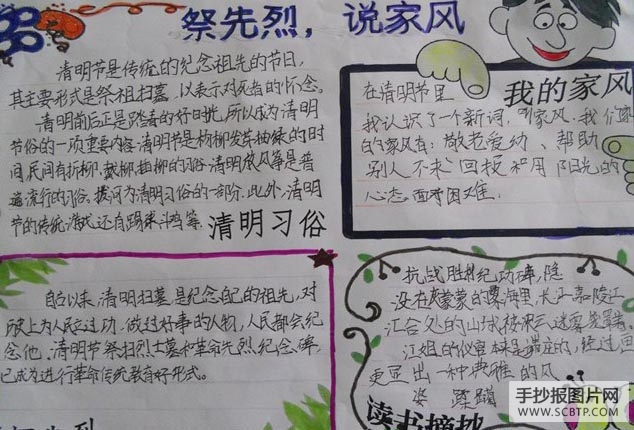 祭先烈，说家风
清明节是传统的纪念祖先的节日，
其主要形式是祭祖扫墓，以表示对死者的怀念。
清明前后正是踏春的好时光，所以成为清明
节俗的一项重要内容。清明节是杨柳发芽抽绿的时
间，民间有折柳、戴柳、插柳的习俗。清明放风筝是普
遍流行的习俗。拔河为清明习俗的一部分，此外，清明
节的传统
清明习俗
我的家风
在清明节里
我认识了一个新词，家风，我们家
的家风有：敬老爱幼、帮助
别人不求回报和用阳光的
心态面对困难。
自古以来，清明扫墓是纪念自己的祖先，对
历史上为人民立过功，做过好事的人物，人民都会纪
念他，清明节祭扫烈士墓和革命先烈纪念碑，
已成为进行革命传统教育好形式。
抗战胜利纪功碑，隐
没在灰蒙蒙的雾海里，长江嘉陵江
汇合处的山城
江姐的
更显出一种典雅的风
姿
读书摘抄
手抄报图片网
WWW.SCBTP.COM